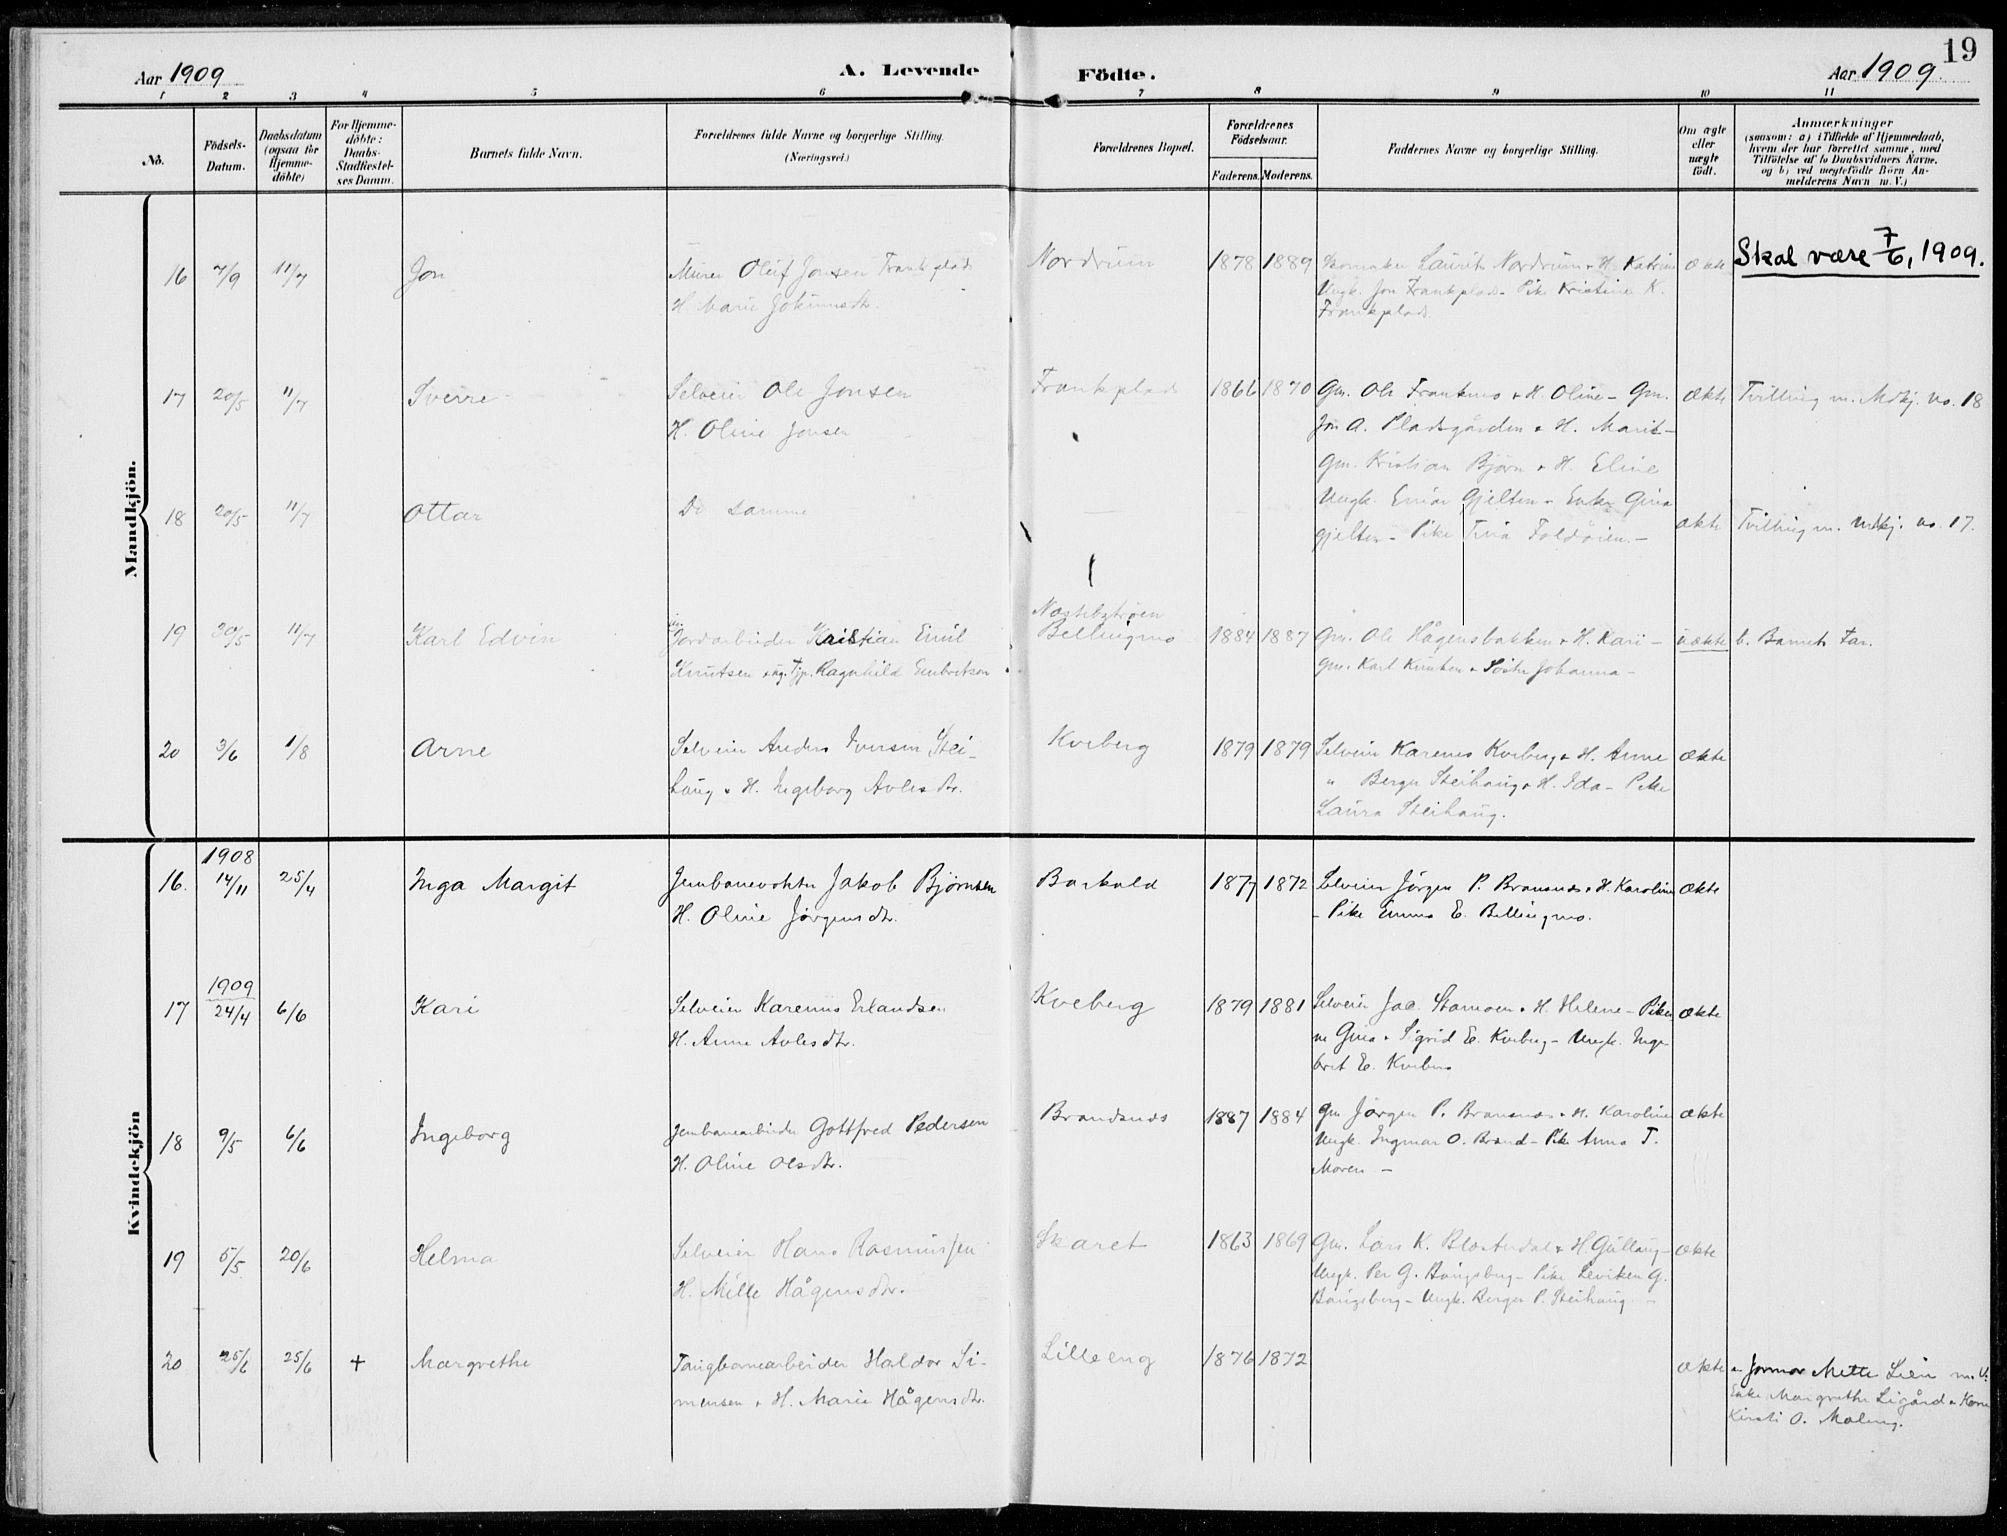 19
Aar 1909
A. Levende
Födte.
Aar 1909.
1 2 3 4 5 6 7 8 9 10 11
No.
Födsels-
Datum.
Daabsdatum
(ogsaa for
Hjemme-
döbte)
For Hjemme-
döbte:
Daabs-
Stadfæstel-
ses Datum.
Barnets fulde Navn.
Forældrenes fulde Navne og borgerlige Stilling.
(Næringsvei.)
Forældrenes Bopæl.
Forældrenes
Födselsaar.
Faderens. Moderens.
Faddernes Navne og borgerlige Stilling.
Om ægte
eller
uægte
födt.
Anmærkninger
(saasom: a) i Tilfælde af Hjemmedaab,
hvem der har forrettet samme, med
Tilföielse af to Daabsvidners Navne,
og b) ved uægtefödte Börn An-
melderens Navn m. V.)
Mandkjön.
16 7/9 11/7 Jon
Murer Oluf Jonsen Frankplads
H. Marie
Nordrum
1878 1889
Laurits Nordrum + H. Katrine
Ungk. Jon Frankplads - Pike Kristine K.
Frankplads.
ækte
Skal være 7/6, 1909.
17 20/5 11/7 Sverre
Selveier Ole Jonsen
H. Oline Jonsen
Frankplads
1866 1870
Gm. Ole Franknes + H. Oline - Gm.
Jon A. Pladsgården + H. Marit -
Gm. Kristian Bjørn + H. Eline
ækte
Tvilling m. Mdkj. no. 18
18 20/5 11/7 Ottar
Do samme
Ungk. Einar Gjelten - Enke Gina
Gjelten - Pike Tina Foldøien. -
ækte
Tvilling m. Mdkj. no. 17.
19 30/5 11/7 Karl Edvin
Jordarbeider Kristian Emil
Knutsen Ragnhild Embretsen
Bellingmo
1884 1887
Gm. Ole Hågensbakken + H. Kari -
Gm. Karl Knutsen + Søster Johanna -
uækte
b. Barnets far.
20 3/6 1/8 Arne
Selveier Anders Iversen Stei-
haug + H. Ingeborg Avlesdtr.
Kveberg
1879 1879
Selveier Karenus Kveberg + H. Anne
" Berger Steihaug + H. Ida - Pike
Laura Steihaug.
ækte
Kvindekjön
16. 1908 14/11 25/4 Inga Margit
Jernbanevokter Jakob Bjørnsen
H. Oline Jørgensdtr.
Barkald
1877 1872
Selveier Jørgen P. Bransnes + H. Karoline
- Pike Emma E. Bellingmo.
ækte
17 1909 24/4 6/6 Kari
Selveier Karenus Erlandsen
H. Anne Avlesdtr.
Kveberg
1879 1881
Selveier Jac. Stamoen + H. Helene - Piker
ne Gina + Sigrid E. Kveberg - Ungk. Inge
bret E. Kveberg
ækte
18 9/5 6/6 Ingeborg
Jernbanearbeider Gottfred Pedersen
H. Oline Olsdtr.
Brandsnes
1887 1884
Gm Jørgen P. Bransnes + H. Karoline
Ungk. Ingmar O. Brand - Pike Anna T.
Moren -
ækte
19 5/5 20/6 Helma
Selveier Hans Rasmussen
H. Mille Hågensdtr.
Skaret
1863 1869
Gm. Lars K. Blæsterdal + H Gullaug -
Ungk. Per G. Bangsberg - Pike Leviken G.
Bangsberg - Ungk. Berger P. Steihaug -
ækte
20 25/6 25/6 + Margrethe
Taugbanearbeider Haldor Si-
mensen + H. Marie Hågensdtr.
Lilleeng
1876 1872
ækte
a. Jormor Mette Lien m. V.
Enke Margrethe Ligård + Kone
Kirsti O. Moleng.